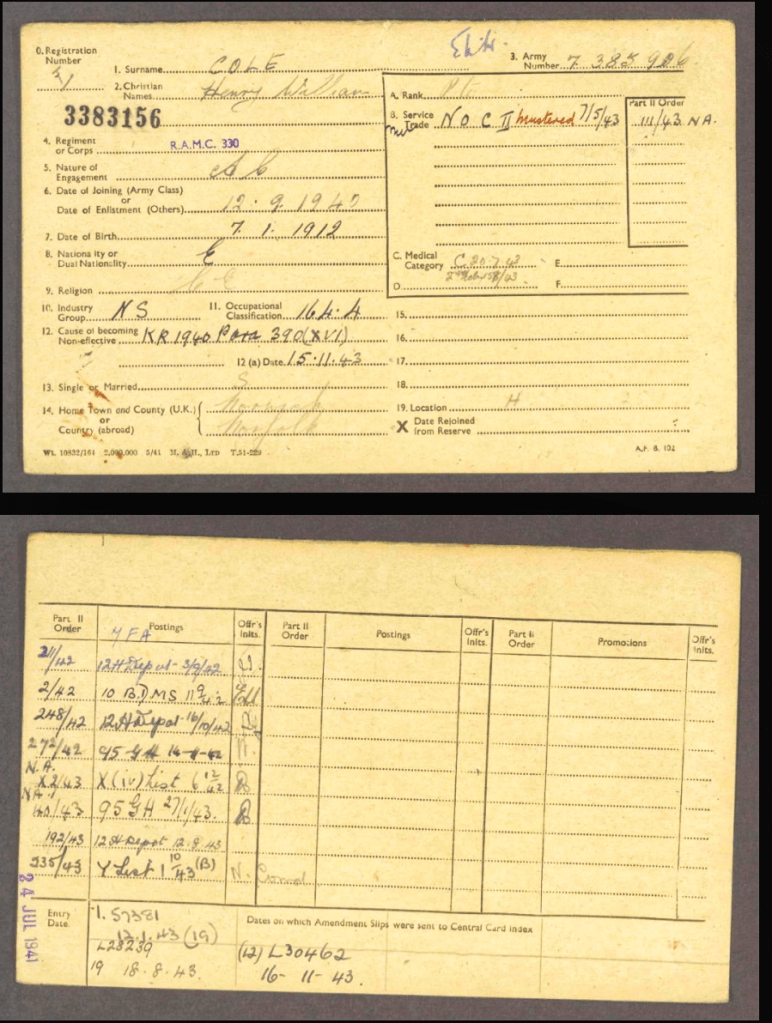 0. Registration Number
1. Surname COLE
3. Army Number 7 385 906
2. Christian Names Henry William
3383156
A. Rank
Part II Order
B. Service Trade N O C II Mustered 7/5/43
111/43 N A.
4. Regiment or Corps R.A.M.C. 330
5. Nature of Engagement
6. Date of Joining (Army Class) or Date of Enlistment (Others) 12. 9. 1940
7. Date of Birth 7. 1. 1912
8. Nationality or Dual Nationality E
C. Medical Category C 20.7.43
E.
D.
F.
9. Religion CE
10. Industry Group NS
11. Occupational Classification 164.4
15.
12. Cause of becoming Non-effective KR 1940 Para 390 (XVI)
16.
12 (a) Date 15.11.43
17.
13. Single or Married S
18.
14. Home Town and County (U.K.) or Country (abroad) Norwich Norfolk
19. Location H
X Date Rejoined from Reserve
Wt. 10832/164 2,000,000 5/41 M. & H., LTD T.51-229
A.F. B. 102
Part II Order
Postings
Offr's Inits.
Part II Order
Postings
Offr's Inits.
Part II Order
Promotions
Offr's Inits.
M F A
12 H Depot 3/9/42
2/42 10 B.D MS
248/42 12 H Depot 16/10/42
272/42 95 G H
N.A.
X2/43 X (iv) List 6 12/42
N.A.
95 G H 27/1/43.
192/43 12 H Depot 12.8.43
235/43 Y List 1 10/43 (B)
24 JUL 1941
Entry Date
1. 57381
12.1.43 (19)
Dates on which Amendment Slips were sent to Central Card Index
L28239
19 18.8.43.
(12) L30462
16-11-43.